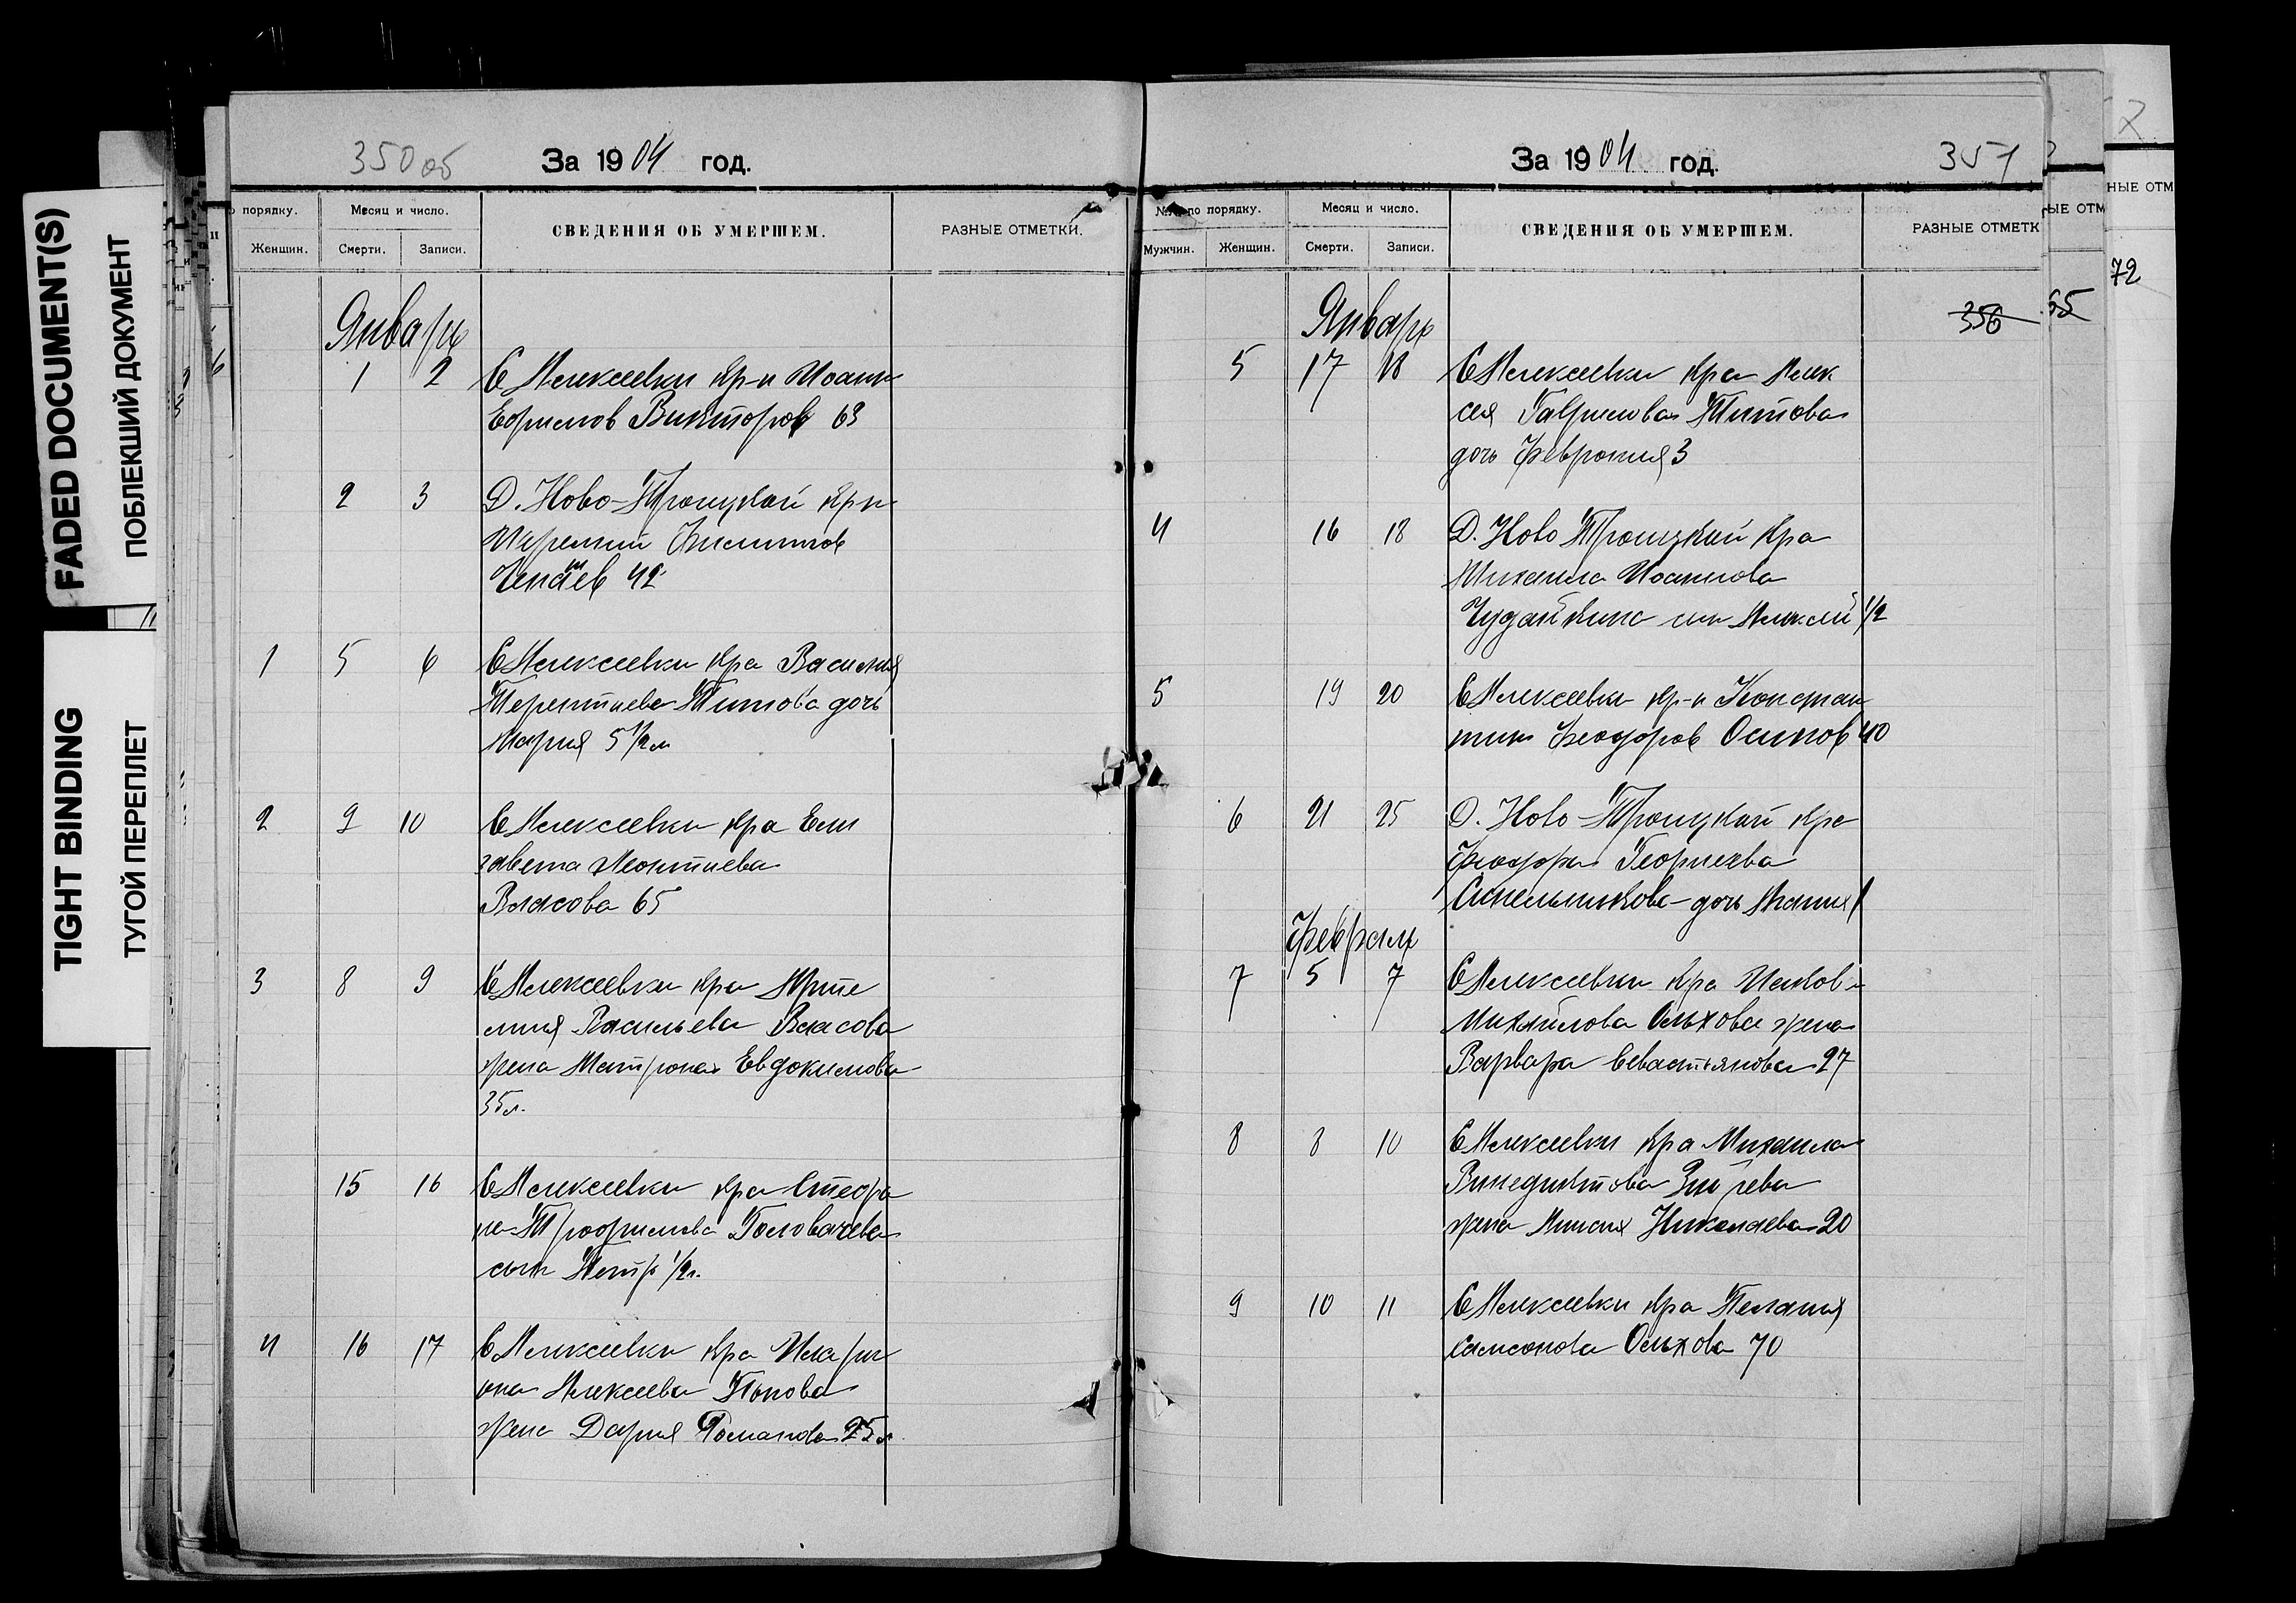 FADED DOCUMENT(S)
ПОБЛЕКШИЙ ДОКУМЕНТ
TIGHT BINDING
ТУГОЙ ПЕРЕПЛЕТ
350 об
За 1904 год.
порядку. Месяц и число. СВЕДЕНИЯ ОБ УМЕРШЕМ. РАЗНЫЕ ОТМЕТКИ.
Женщин. Смерти. Записи.
Январь
1 2 С Алексеевки кр-н Иоанн
Ефимов Викторов 63
2 3 Д. Ново-Троицкой кр-н
Иеремий Филиппов
42
1 5 6 С Алексеевки кра Василия
Терентиева Титова дочь
Мария 5 1/2 м
2 9 10 С Алексеевки кра Ели
завета Леонтиева
Власова 65
3 8 9 С Алексеевки кра Арте
мия Васильева Власова
жена Матрона Евдокимова
35 л.
15 16 С Алексеевки кра Стефа
на Трофимова Головачева
сын Петр 1/2 г.
4 16 17 С Алексеевки кра Илари
она Алексеева Попова
жена Дария Романова 25 л
За 1904 год.
351
по порядку. Месяц и число. СВЕДЕНИЯ ОБ УМЕРШЕМ. РАЗНЫЕ ОТМЕТК
Мужчин. Женщин. Смерти. Записи.
Январь
356
5 17 18 С Алексеевки кра Алек
сея Гаврилова Титова
дочь Феврония 3
4 16 18 Д. Ново Троицкой кра
Михаила Иоаннова
Чудайкина сын Алексей 1/2
5 19 20 С Алексеевки кр-н Констан
тин Феодоров Осипов 40
6 21 25 Д. Ново-Троицкой кра
Феодора Георгиева
Синельникова дочь
Февраль
7 5 7 С Алексеевки кра Иакова
Михайлова Ольхова жена
Варвара Севастьянова 27
8 8 10 С Алексеевки кра Михаила
Винедиктова
жена Николаева 20
9 10 11 С Алексеевки кра Пелагия
Самсонова Ольхова 70
ЫЕ ОТМ
55
НЫЕ ОТМ
72